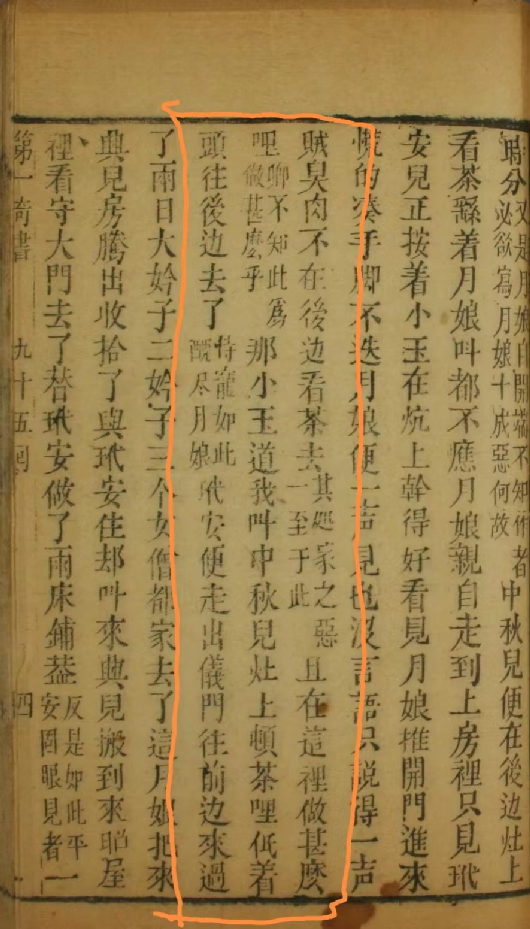 時分必是月娘自開端不知作者必欲寫月娘十成惡何故中秋兒便在後边灶上
看茶繇着月娘叫都不應月娘親自走到上房裡只見玳
安兒正按着小玉在炕上幹得好看見月娘推開門進來
慌的湊手脚不迭月娘便一声見也沒言語只說得一声
賊臭肉不在後边看茶去其処家之惡一至于此且在這裡做甚麼
哩卿不知此爲做甚麼乎那小玉道我叫中秋兒灶上頓茶哩低着
頭往後边去了恃寵如此醜尽月娘玳安便走出儀門往前边來過
了兩日大妗子二妗子三个女僧都家去了這月娘把來
興兒房騰出收拾了與玳安住却叫來興兒搬到來昭屋
裡看守大門去了替玳安做了兩床鋪盖反是如此平安固眼見者一
第一奇書 九十五囘 四